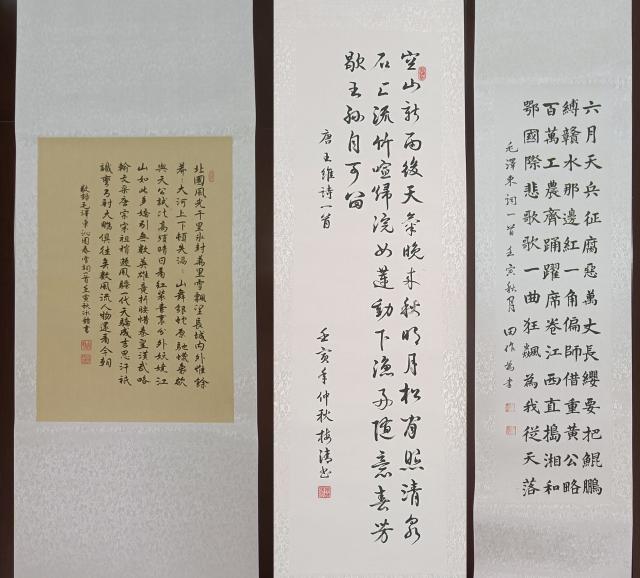 北國風光千里冰封萬里雪飄望長城内外惟餘
莽莽大河上下頓失滔滔山舞銀蛇原馳蠟象欲
與天公試比高須晴日看紅裝素裹分外妖嬈江
山如此多嬌引無數英雄競折腰惜秦皇漢武略
輸文采唐宗宋祖稍遜風騷一代天驕成吉思汗祇
識彎弓射大雕俱往矣數風流人物還看今朝
毛澤東沁園春雪詞一首壬寅秋
空山新雨後天氣晚来秋明月松间照清泉
石上流竹喧歸浣女蓮動下漁舟隨意春芳
歇王孫自可留
唐王維诗一首
壬寅年仲秋梅清书
六月天兵征腐惡萬丈長纓要把鯤鵬
縛贛水那邊紅一角偏師借重黄公略
百萬工農齊踴躍席卷江西直搗湘和
鄂國際悲歌歌一曲狂飆為我從天落
毛澤東詞一首壬寅秋月田作為書